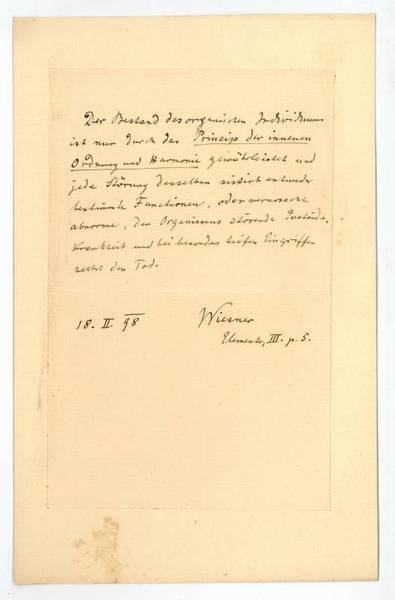 Der Bestand des organischen Individuums
ist nur durch das Princip der inneren
Ordnung und Harmonie gewährleistet und
jede Störung desselben sistirt entweder
bestimmte Functionen, oder verursacht
abnorme, den Organismus störende Zustände,
Krankheit und bei besonders tiefen Eingriffen
selbst den Tod.
18. II. 98 Wiesner
Elemente, III. p. 5.